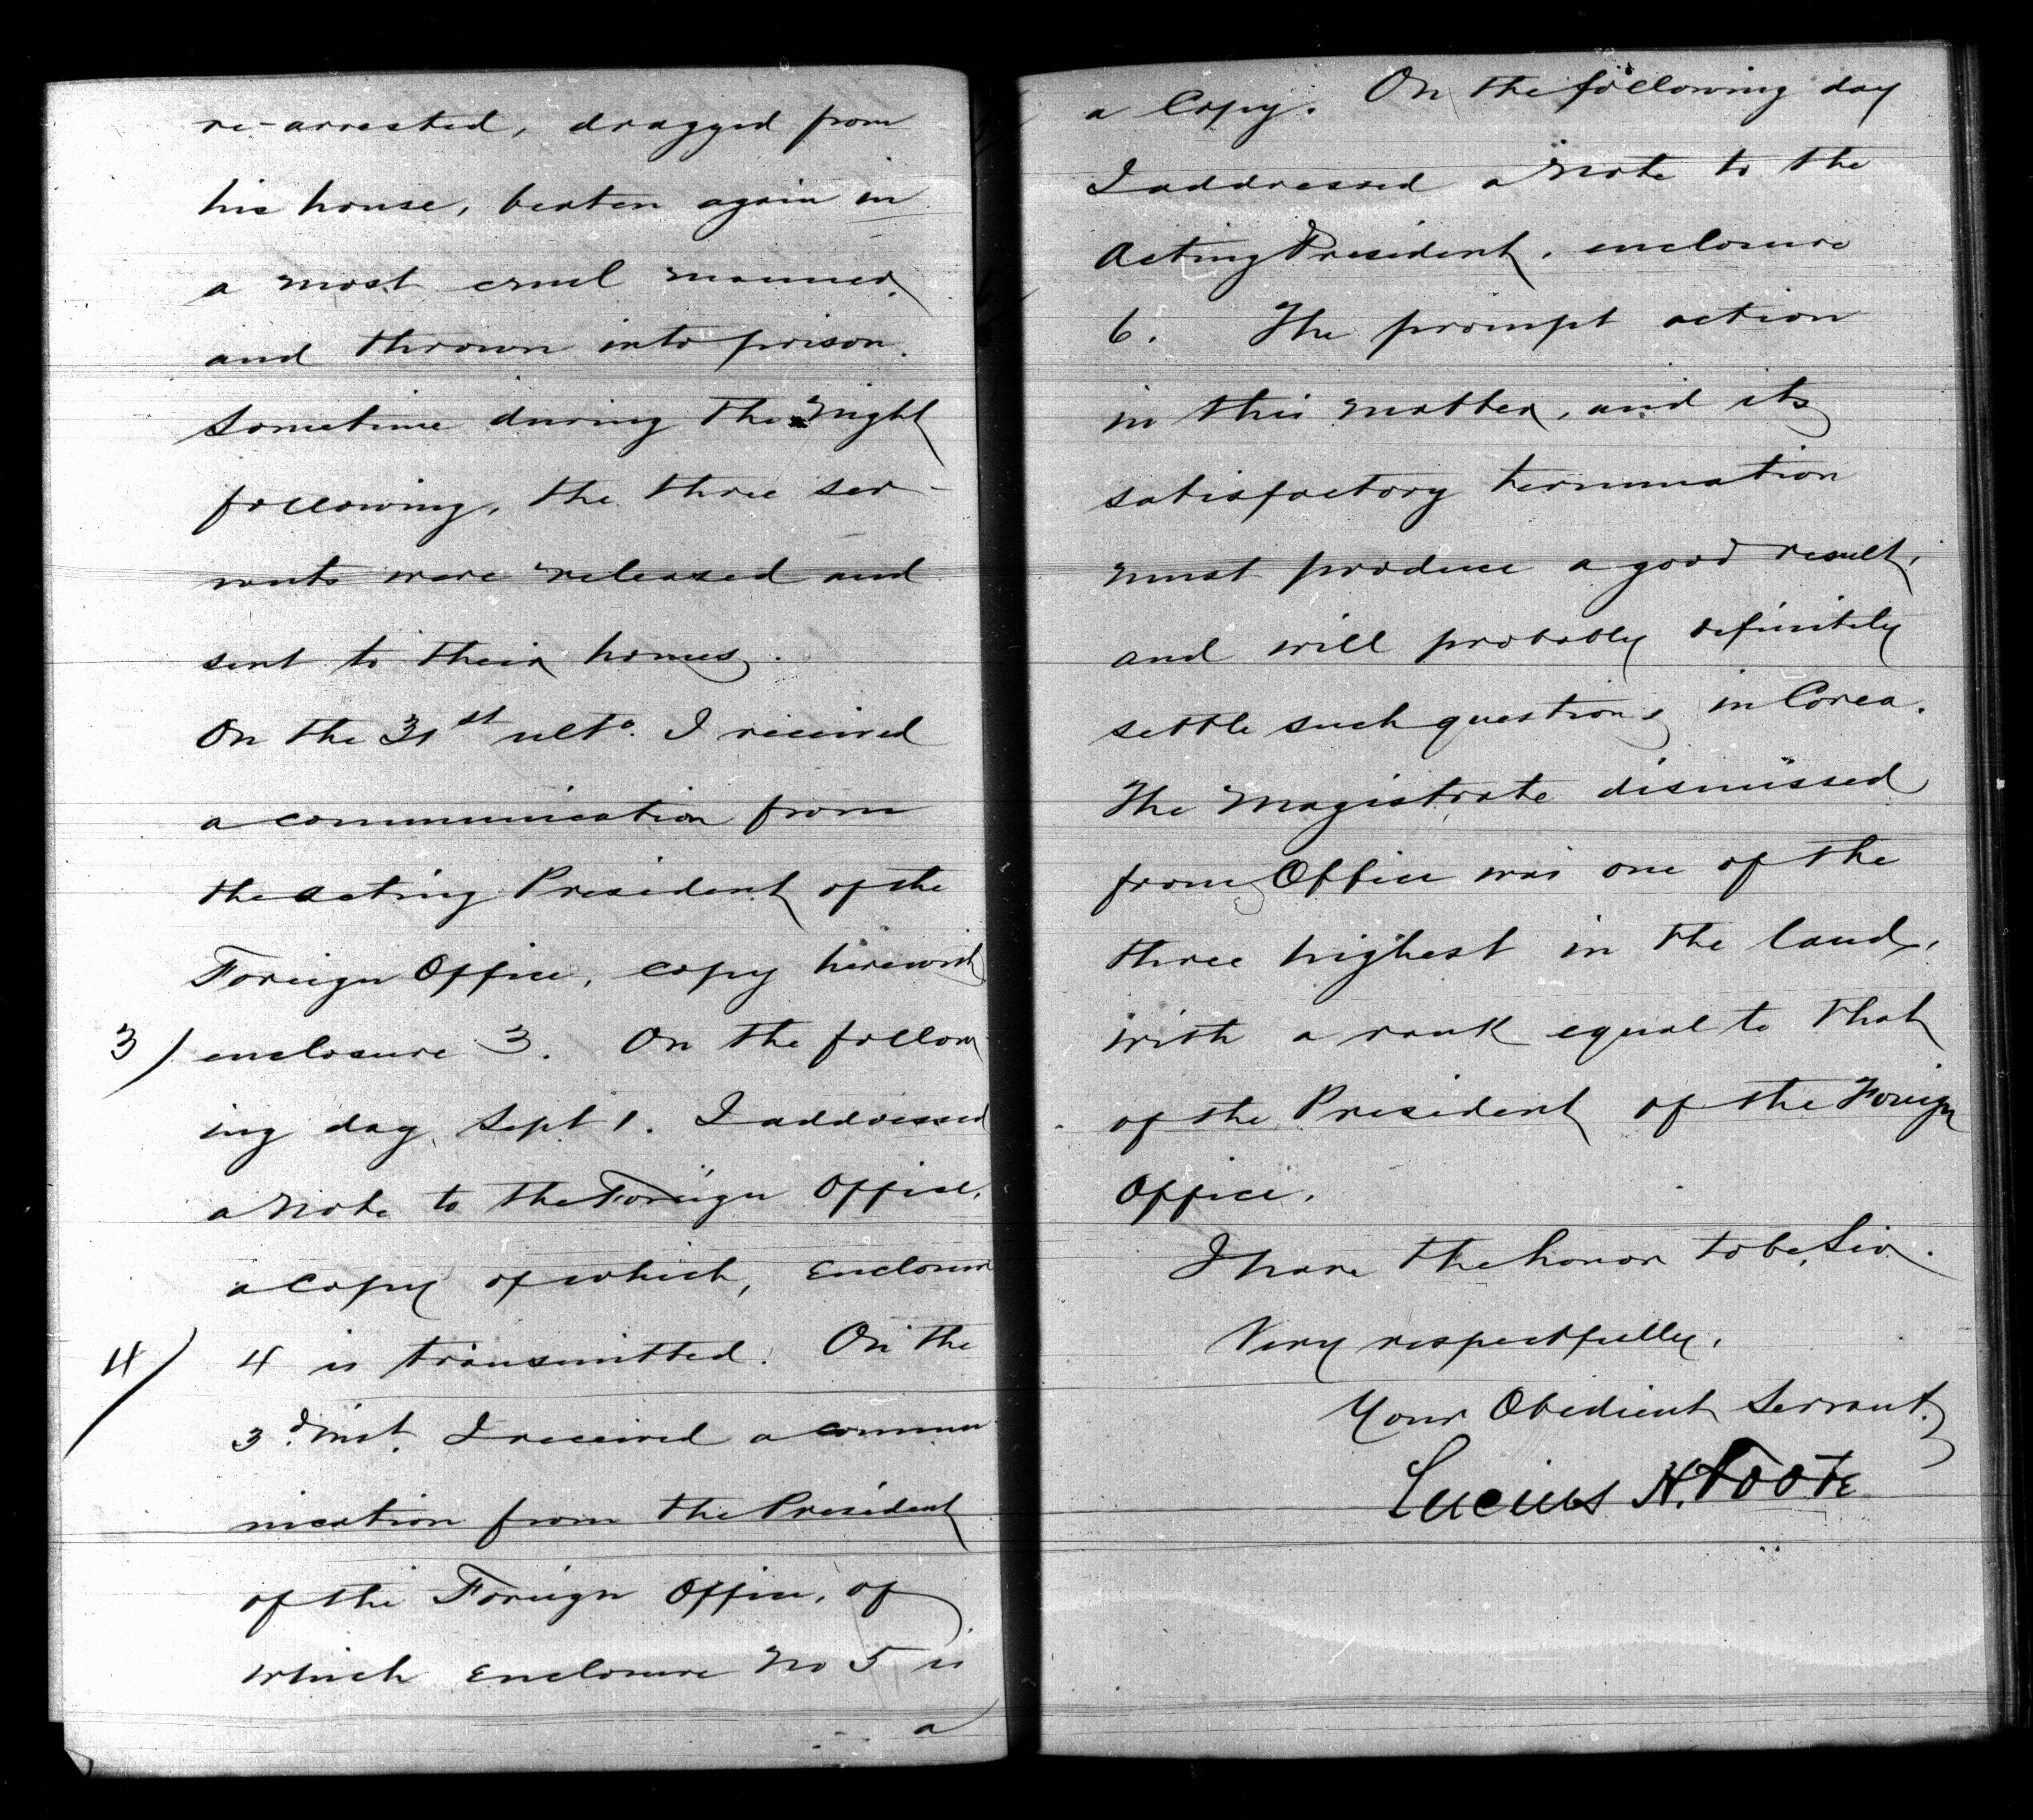 re-arrested, dragged from
his house, beaten again in
a most cruel manner,
and thrown into prison.
Sometime during the night
following, the three ser-
vants were released and
sent to their homes.
On the 31st ulto. I received
a communication from
the Acting President of the
Foreign Office, copy herewith
3/ enclosure 3. On the follow
ing day, Sept 1. I addressed
a note to the Foreign Office,
a copy of which, Enclosure
4/ 4 is transmitted. On the
3d. inst. I received a commu
nication from the President
of the Foreign Office, of
which Enclosure No 5 is
a
a Copy. On the following day
I addressed a note to the
Acting President, enclosure
6. The prompt action
in this matter, and its
satisfactory termination
must produce a good result,
and will probably definitely
settle such questions in Corea.
The Magistrate dismissed
from Office was one of the
three highest in the land,
with a rank equal to that
of the President of the Foreign
Office.
I have the honor to be, Sir.
Very respectfully,
Your Obedient Servant,
Lucius H. Foote